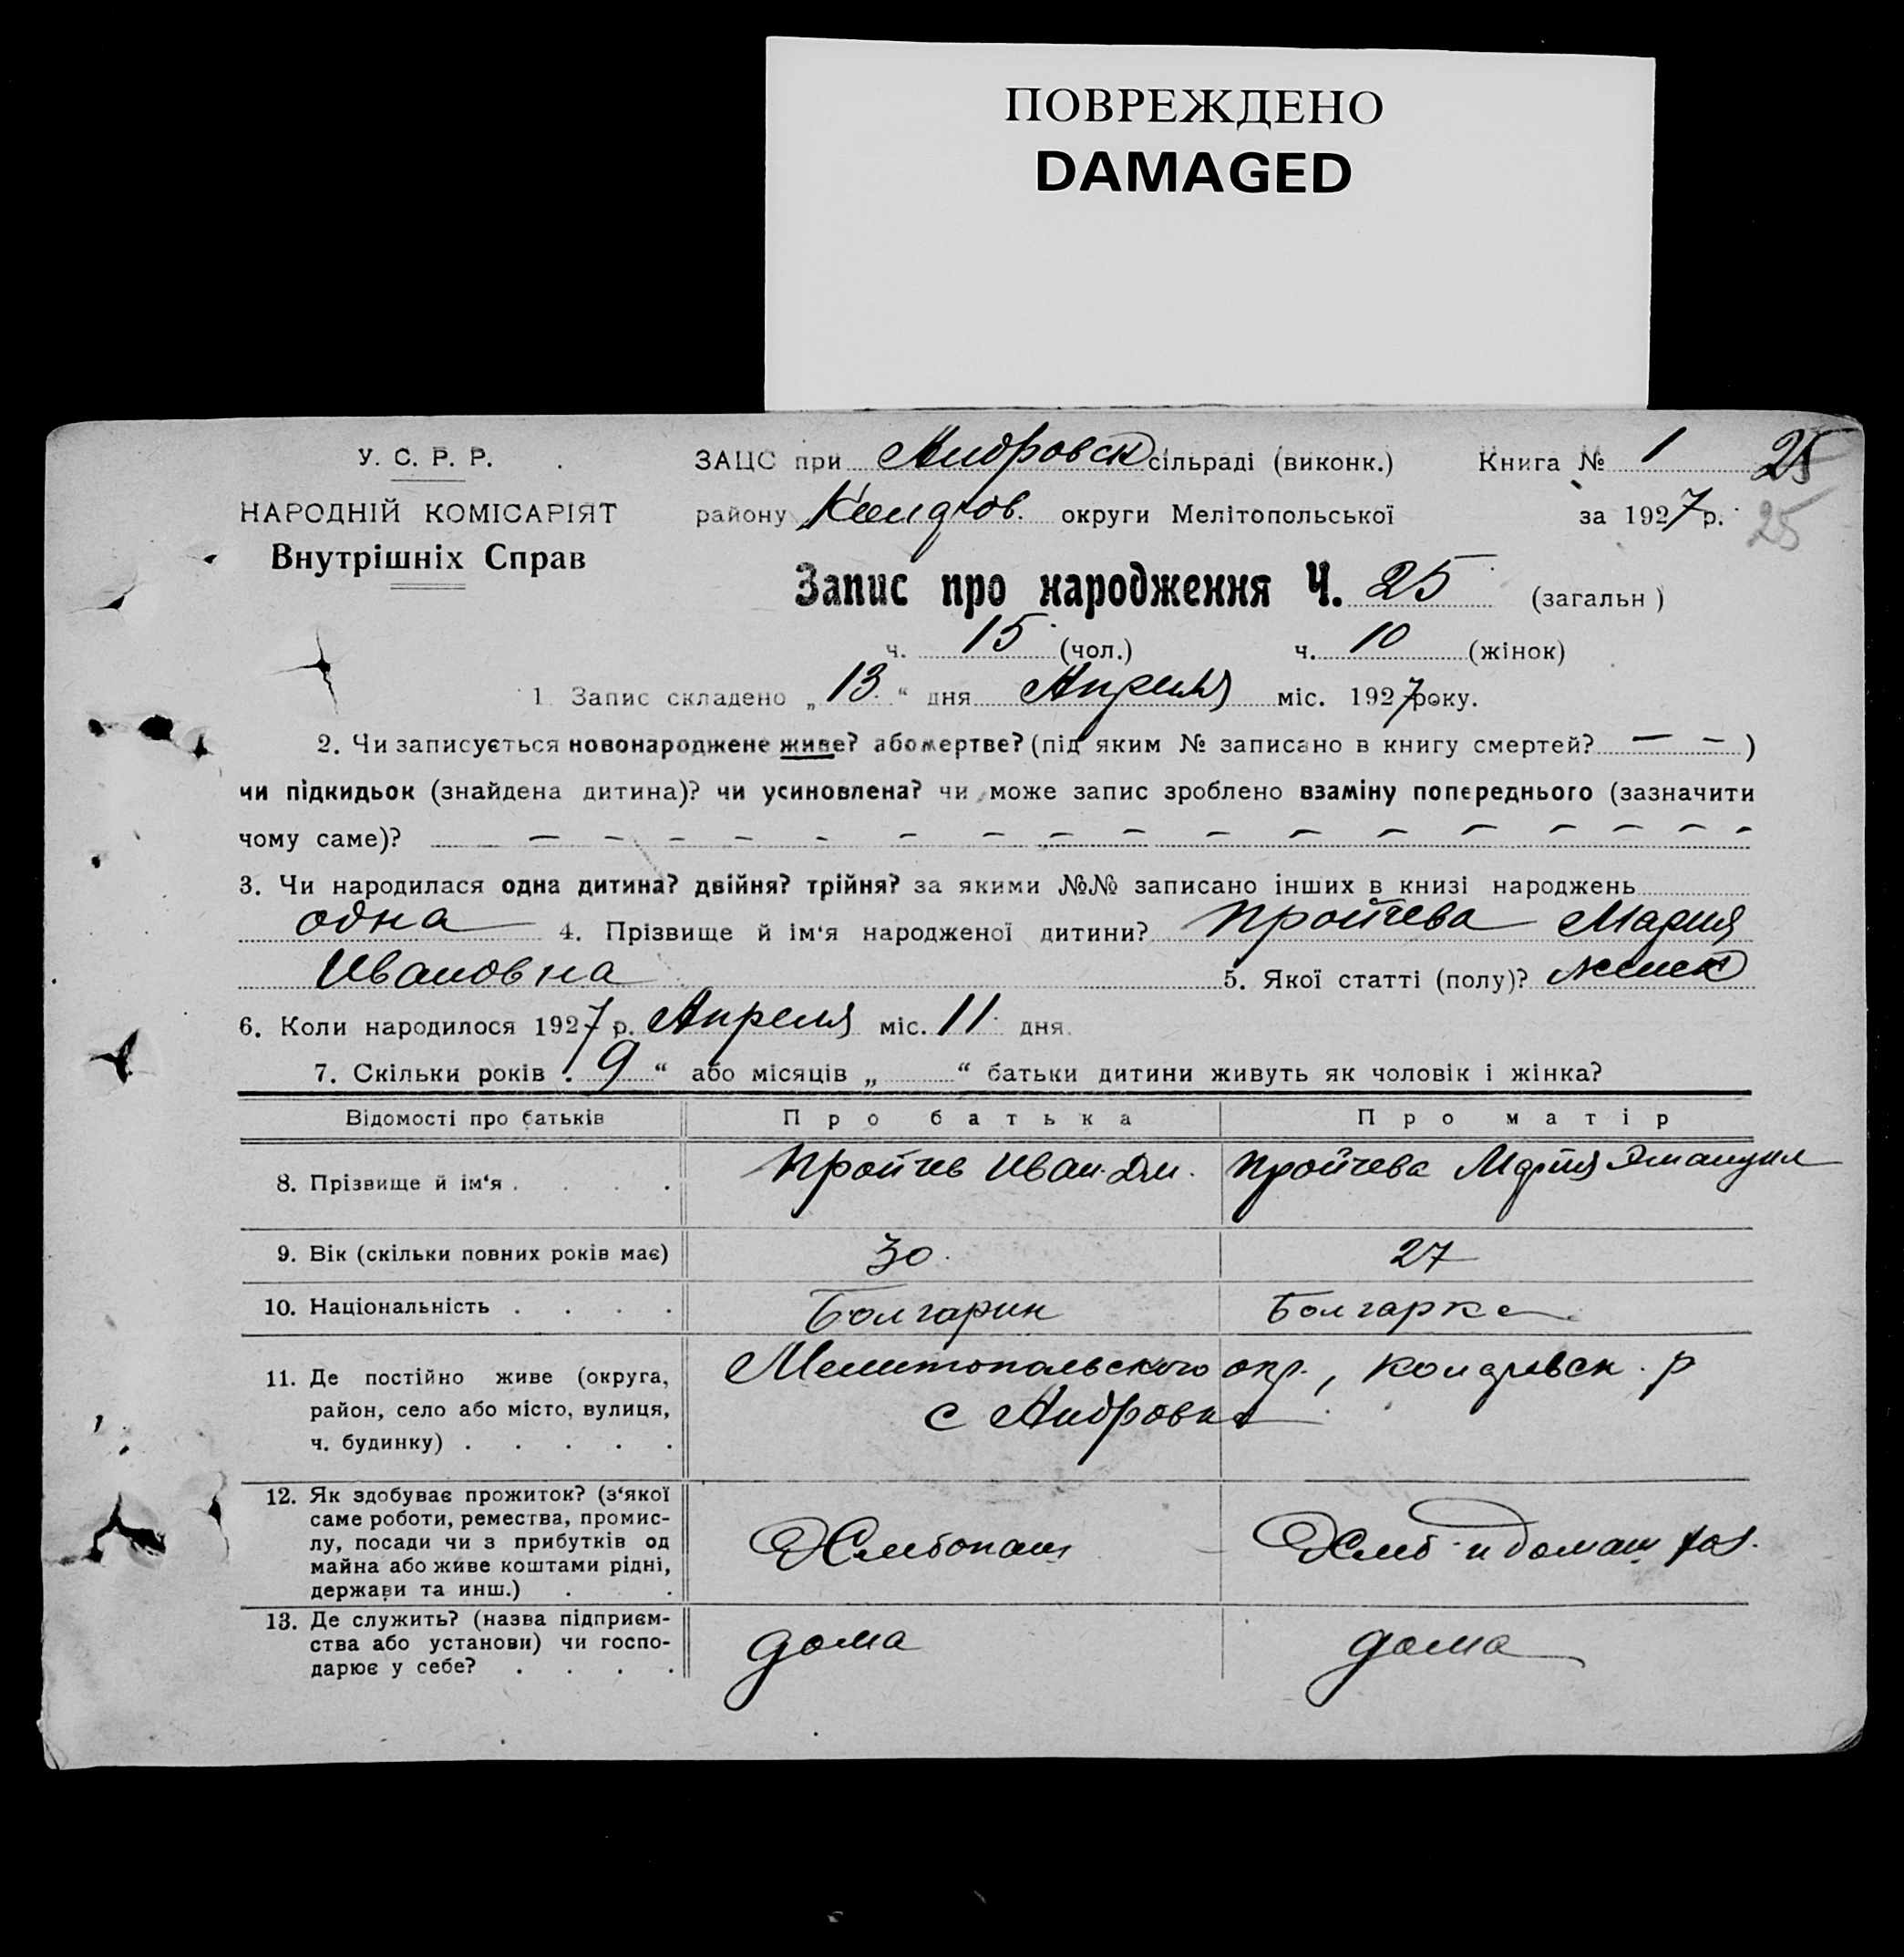 ПОВРЕЖДЕНО
DAMAGED
У. С. Р. Р.
НАРОДНІЙ КОМІСАРІЯТ
Внутрішніх Справ
ЗАЦС при Андровск сільраді (виконк.) Книга № 1 25
району округи Мелітопольської за 1927 р. 25
Запис про народження Ч. 25 (загальн)
ч. 15 (чол.) ч. 10 (жінок)
1 Запис складено „13“ дня Апреля міс. 1927 року.
2. Чи записується новонароджене живе? або мертве? (під яким № записано в книгу смертей? — — )
чи підкидьок (знайдена дитина)? чи усиновлена? чи може запис зроблено взаміну попереднього (зазначити
чому саме)? — — — — — — — — — — — — — — — —
3. Чи народилася одна дитина? двійня? трійня? за якими №№ записано інших в книзі народжень
одна 4. Прізвище й ім‘я народженої дитини? Пройчева Мария
Ивановна 5. Якої статті (полу)? женск
6. Коли народилося 1927 р. Апреля міс. 11 дня.
7. Скільки років „9“ або місяців „ “ батьки дитини живуть як чоловік і жінка?
Відомості про батьків Про батька Про матір
8. Прізвище й ім‘я . . . . Пройчев Иван Дм. Пройчева Мария Эмануил
9. Вік (скільки повних років має) 30. 27
10. Національність . . . . Болгарин Болгарка
11. Де постійно живе (округа, Мелитопольского окр., р
район, село або місто, вулиця, с Андровка
ч. будинку) . . . . .
12. Як здобуває прожиток? (з‘якої
саме роботи, ремества, промис-
лу, посади чи з прибутків од Хлебопаш Хлеб и домаш хоз.
майна або живе коштами рідні,
держави та инш.) . .
13. Де служить? (назва підприєм-
ства або установи) чи госпо- дома дома
дарює у себе? . . . .